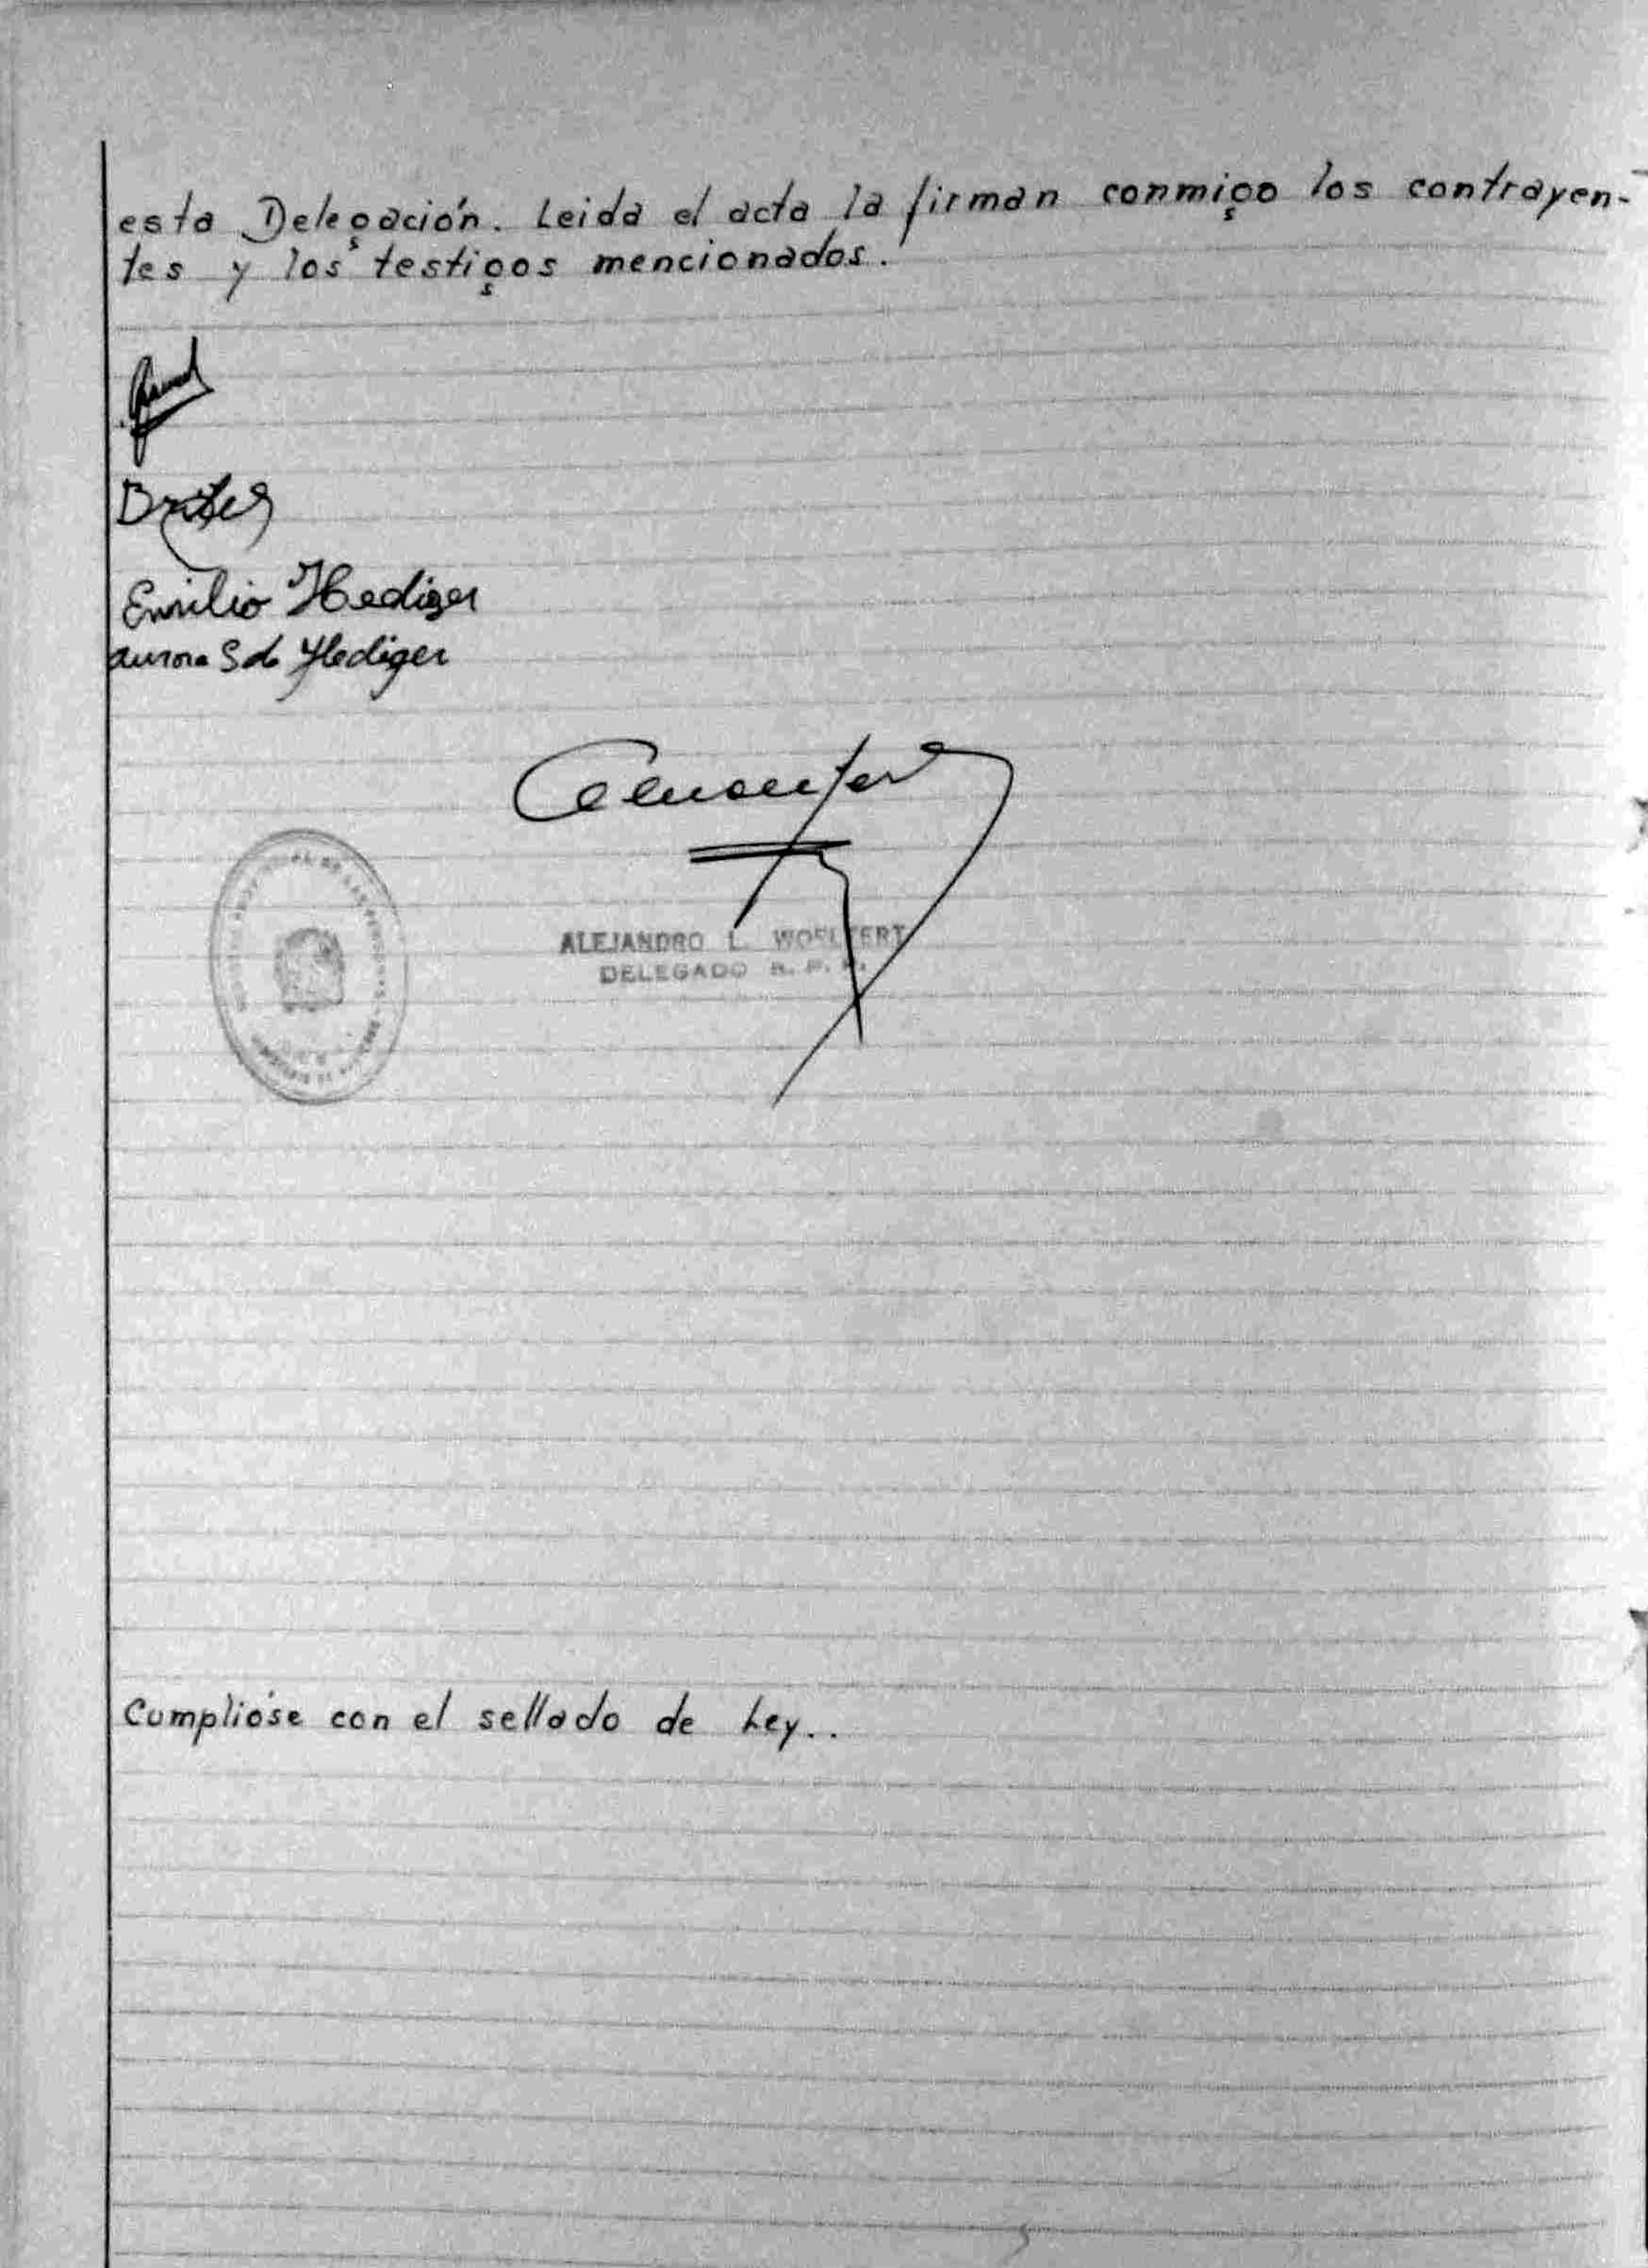 esta Delegación. Leida el acta la firman conmigo los contrayen-
tes y los testigos mencionados.
Emilio Hediger
Aurora S de Hediger
ALEJANDRO L. WOELFERT
DELEGADO R. P. P.
Cumplióse con el sellado de Ley..